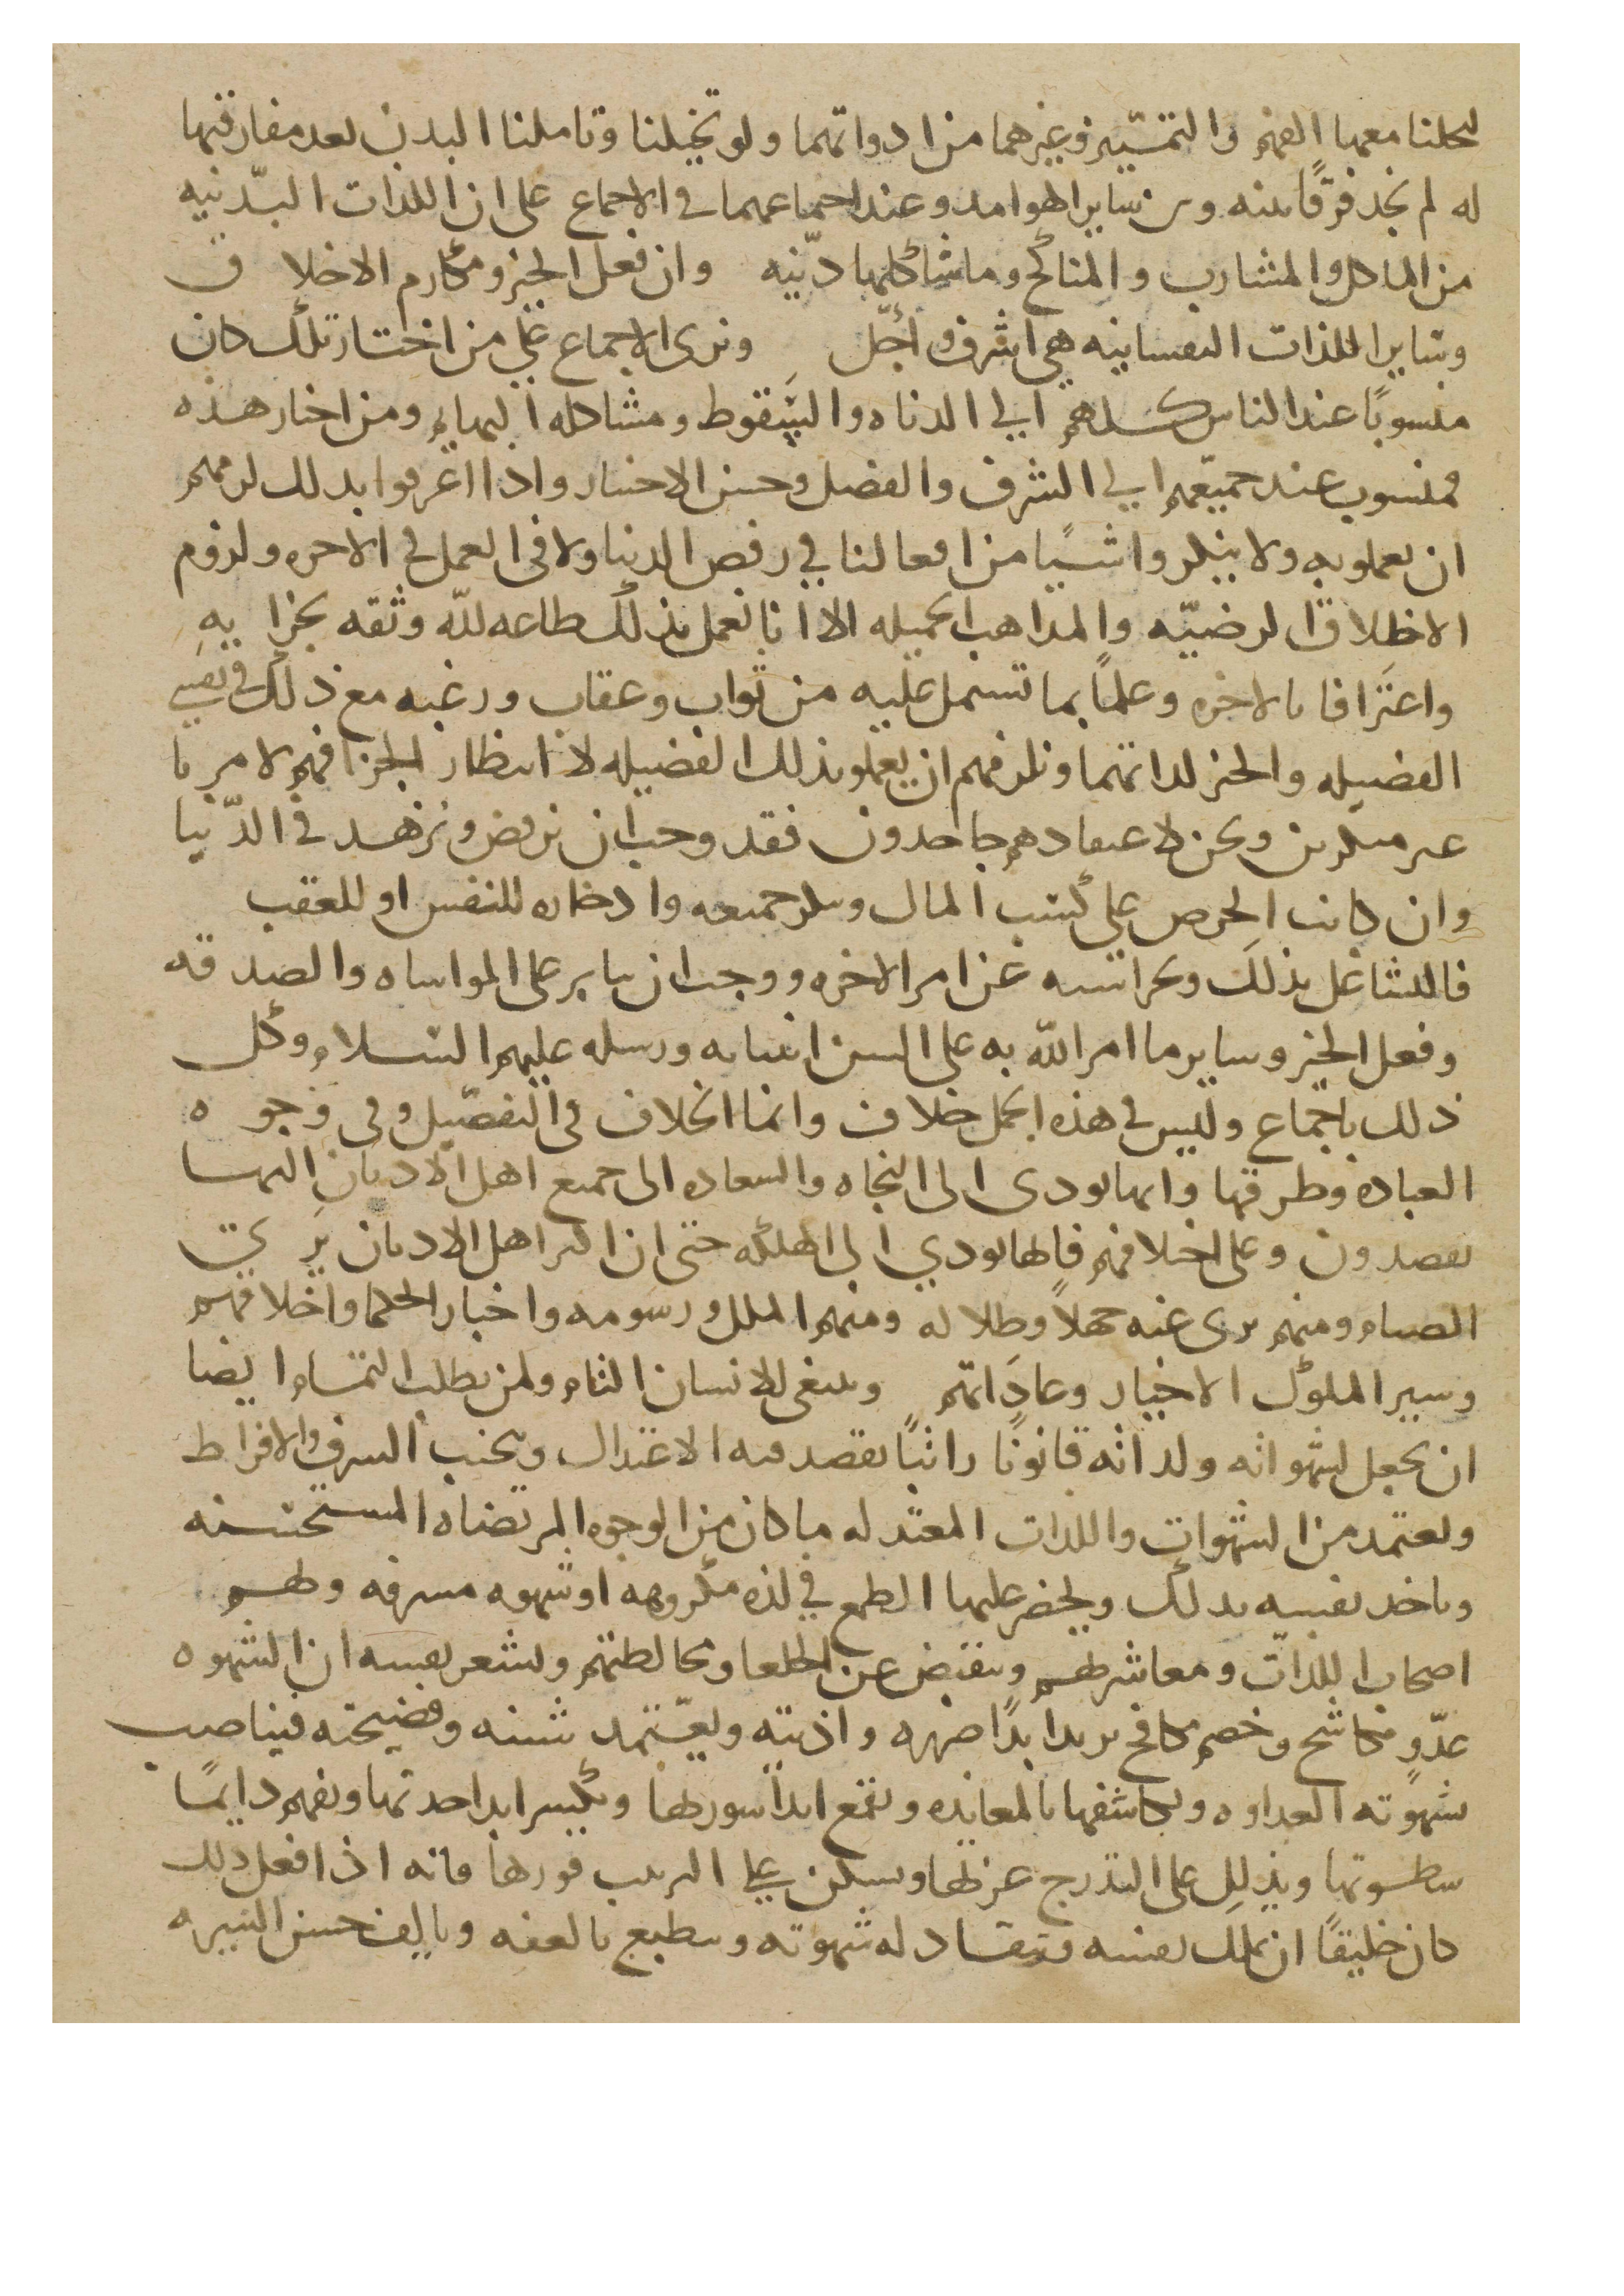 لتحلنا معها الفهم والتمييز وغيرهما من ادواتهما ولو تخيلنا وتاملنا البدن بعد مفارقتها
له لم نجد فرقًا بينه وبين ساير الهوامد وعند اجتماعهما في الاجماع على ان اللذات البدّنيه
من الماكل والمشارب والمناكح وما شاكلها دنّيه وان فعل الخير ومكارم الاخلاق
وساير اللذات النفسانيه هي اشرف واجّل ونرى الاجماع على من اختار تلك كان
منسوبًا عند الناس كلهم الى الدناه والسقوط ومشاكله البهايم ومن اختار هذه
فمنسوب عند جميعهم الى الشرف والفضل وحسن الاختيار واذا اعرفوا بذلك لزمهم
ان يعملو به ولا ينكروا شيًا من افعالنا في رفض الدنيا ولا في العمل في الاخره ولزوم
الاخلاق الرضيّه والمداهب الجميله الا انا نعمل بذلك طاعه للّه وثقه بجزايه
واعترافا بالاخره وعلمًا بما تشتمل عليه من ثواب وعقاب ورغبه مع ذلك في نفس
الفضيله والخير لداتهما ونلزمهم ان يعملو بذلك الفضيله لا انتظار الجزا فهم لامرنا
غير منكرين ونحن لاعتقادهم جاحدون فقد وجب ان نرفض ونزهد في الدّنيا
وان كانت الحرص على كسب المال وسلر جميعه وادخاره للنفس او للعقب
فالتشاغل بذلك وبحراسته عن امر الاخره ووجب ان يثابر على المواساه والصدقه
وفعل الخير وساير ما امر اللّه به على السن انبيايه ورسله عليهم السلام وكل
ذلك باجماع وليس في هذه الجمل خلاف وانما الخلاف في التفصيل وفي وجوه
العباده وطرقها وايها يودى الى النجاه والسعاده الى جميع اهل الاديان اليها
يقصدون وعلى اختلافهم فايها يودي الى الهلكه حتى ان اكثر اهل الاديان يرى
الصيام ومنهم يرى عنه جهلاً وظلاله ومنهم الملل ورسومه واخبار الحكما واخلاقهم
وسير الملوك الاخيار وعاداتهم وينبغى للانسان التام ولمن يطلب التمام ايضا
ان يجعل لشهواته ولداته قانونًا راتبًا يقصد فيه الاعتدال ويجنب السرف والافراط
ويعتمد من الشهوات واللدات المعتدله ما كان من الوجوه المرتضاه المستحسنه
وياخد نفسه بدلك ويحضر عليها الطمع في لذه مكروهه او شهوه مسرفه
اصحاب اللدات ومعاشرطهم وينقبض عن الخلعا ومخالطتهم ويشعر نفسه ان الشهوه
عدّوٍ مكاشح وخصم مكافح يريد ابدًا ضرره واذيته ويعّتمد شينه وفضيحته فيناصب
شهوته العداوه ويكاشفها بالمعانده ويقمع ابدًا سورطها ويكسر ابدا حدتها ويقهم دايمًا
سطوتها ويذلل على التدرج عزطها ويسكن على الترتيب فورها فانه اذا فعل ذلك
كان خليقًا ان يملك نفسه وتنقاد له شهوته ويتطبع بالعفه ويالف حسن السيره